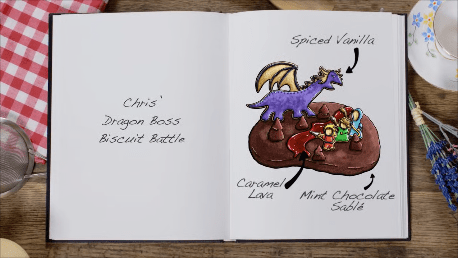 Chris'
Dragon Boss
Biscuit Battle
Spiced Vanilla
Caramel
Lava
Mint Chocolate
Sablé